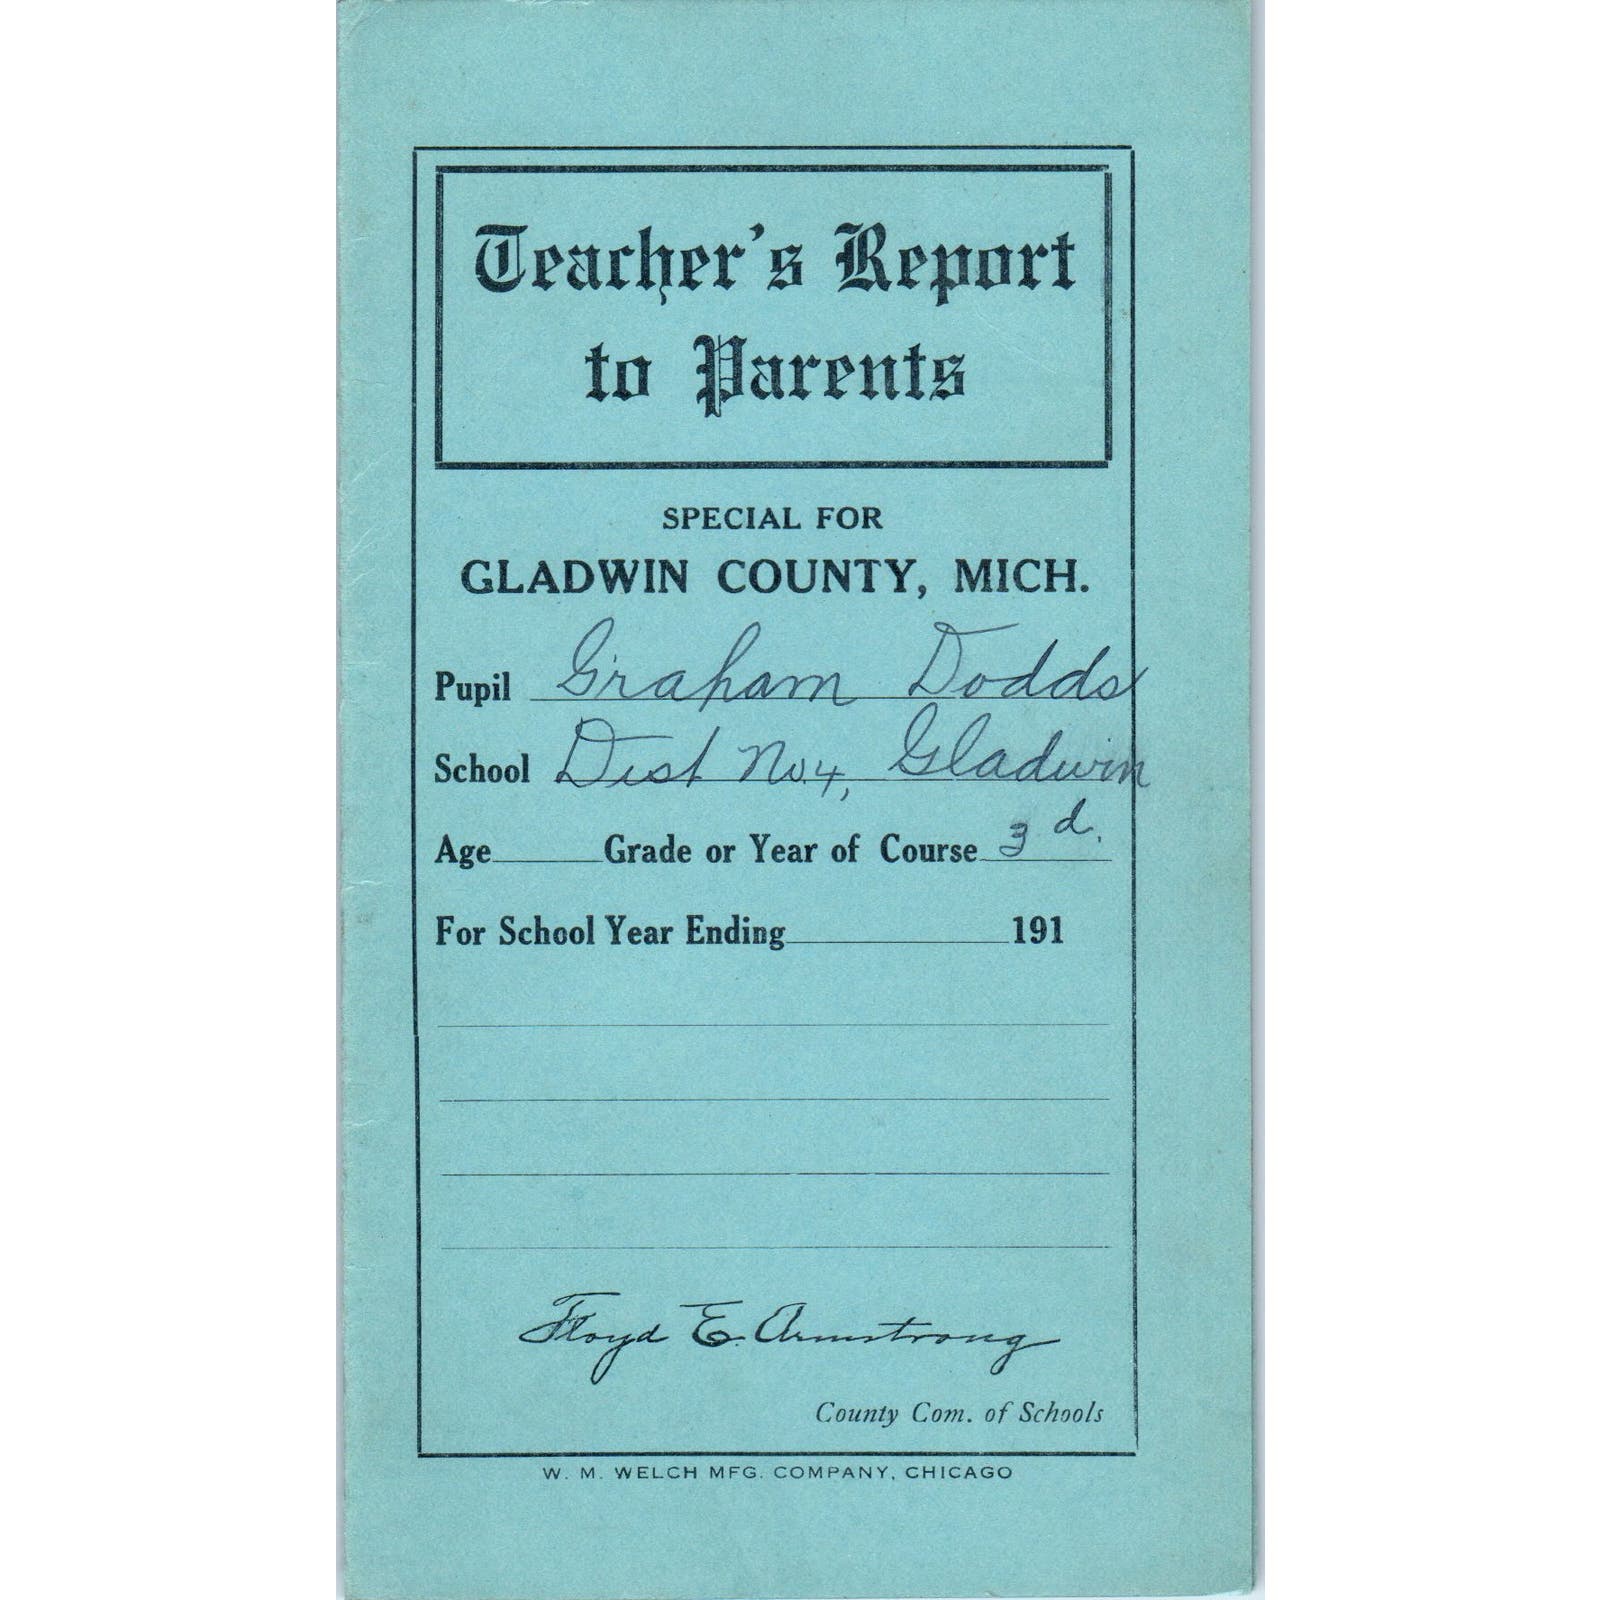 Teacher's Report
to Parents
SPECIAL FOR
GLADWIN COUNTY, MICH.
Pupil Graham Dodds
School Dist No. 4, Gladwin
Age Grade or Year of Course 3d.
For School Year Ending 191
Floyd E. Armstrong
County Com. of Schools
W. M. WELCH MFG. COMPANY, CHICAGO